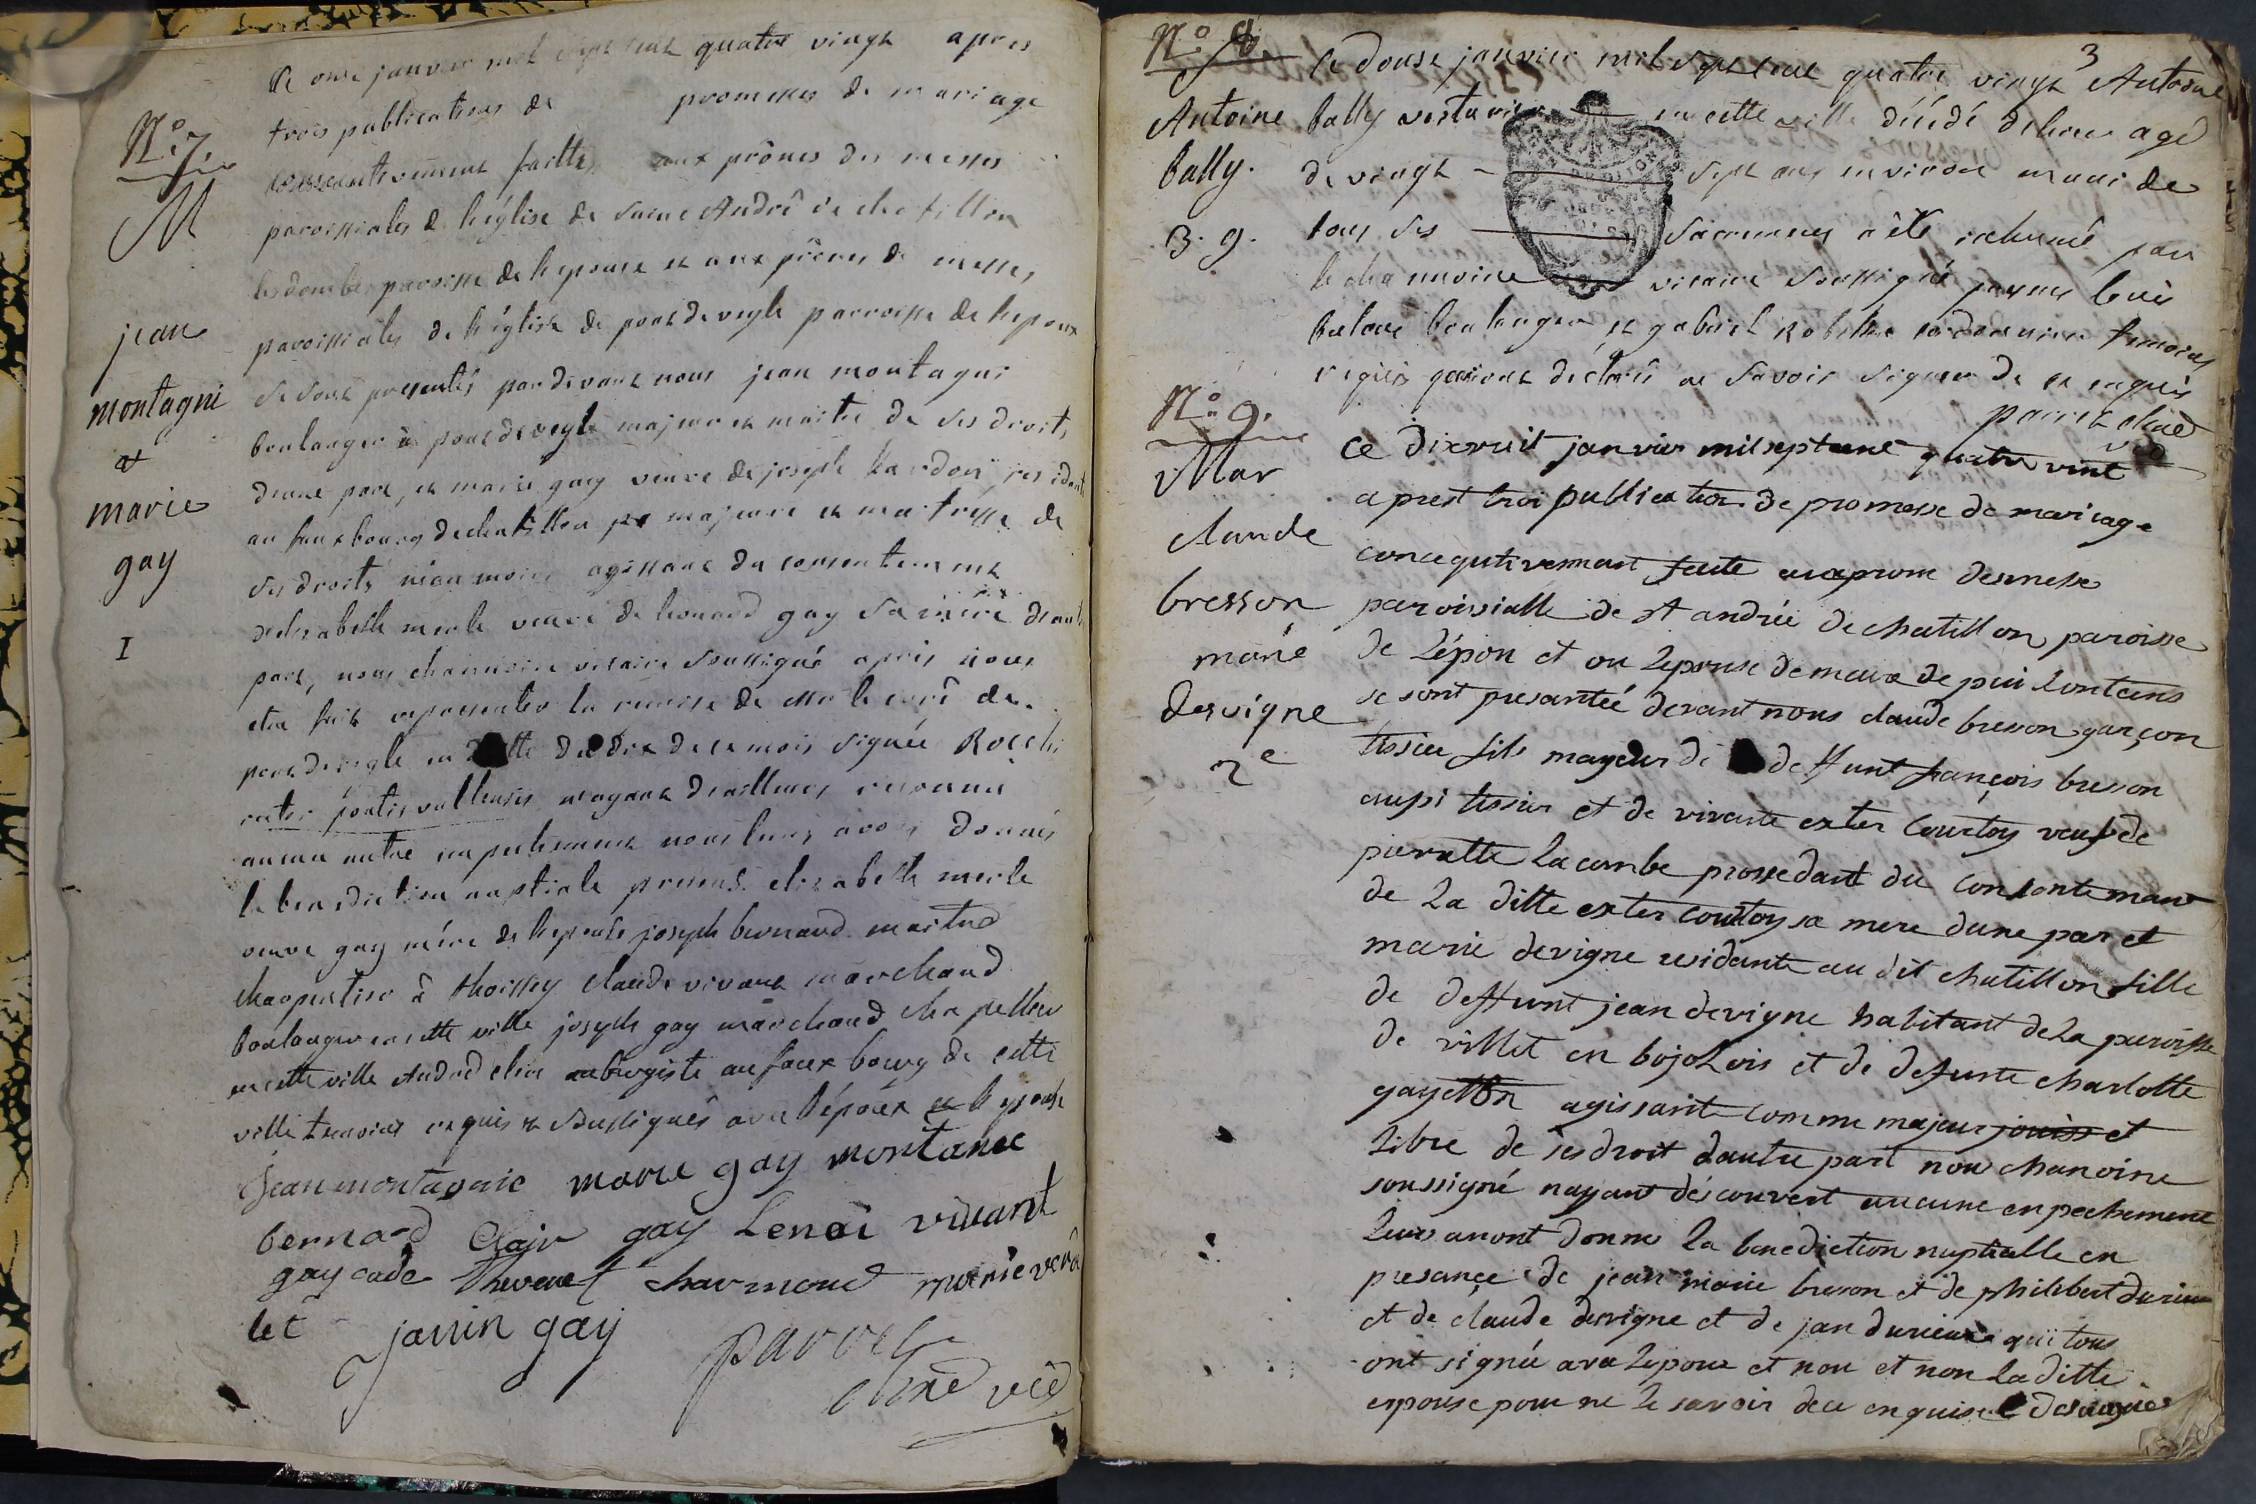 N.° 7.
M
jean
montagni
et
marie
gay
I
le onze janvier mil sept cent quatre vingt apres
trois publications de promesses de mariage
consecutivement faittes aux prônes des messes
paroissiales de l'église de saint André de chatillon
les dombes paroisse de l'epouse et aux prônes de messes
paroissiales de l'église de pont de veyle parroisse de l'epoux
se sont presentés pardevant nous jean montagni
boulanger à pont de veyle majeur et maitre de ses droits
d'une part, et marie gay veuve de joseph residante
au fauxbourg de chatillon majeure et maitresse de
ses droits neanmoins agissant du consentement
d'elisabeth merle veuve de leonard gay sa mère d'autre
part, nous chanoine vicaire soussigné apres nous
etre fait representer la remise de mr le curé de
pont de veyle en datte du dix de ce mois signée
rector pontis vallensis n'ayant d'ailleurs reconnu
aucun autre empechement nous leurs avons donnés
la benediction nuptiale presens elisabeth merle
veuve gay mère de l'epouse joseph bernard maitre
charpentier à thoissey claude vivant marchand
boulanger en cette ville joseph gay marchand chapellier
en cette ville André clair aubergiste au faux bourg de cette
ville temoins requis et soussignés avec l'époux et l'epouse
Jean montagnie marie gay montanee
bernard Clair gay Lenoi vivant
gay cade thevenet charmond marie verd
let janin gay
parret
chne vic
3
N.° 8.
Antoine
bally.
3. g.
le douse janvier mil sept cent quatre vingt Antoine
bally en cette ville décédé d'hier agé
de vingt - sept ans environ muni de
tous ses sacremens a été inhumé par
le chanoine vicaire soussigné presens louis
boulanger et gabriel cordonnier temoins
requis qui ont déclaré ne savoir signer de ce enquis
parret chne
vic
N.° 9.
Mar
claude
bresson
marie
desvigne
2e
Ce dixvuit janvier mil septcent quatre vint
aprest troi publication de promesse de mariage
concequtivement faite au prone des messe
paroissialle de st andrée de chatillon paroisse
de l'épou et ou lepouse demeure de pui lontems
se sont presantéé devant nous claude bresson garçon
tissier fils mageur de deffunt françois bresson
aussi tissier et de vivante ester Courtoy veuf de
pierrette lacombe prossedant du consontemant
de la ditte exter courtoy sa mere dune par et
marie devigne residante au dit chatillon fille
de deffunt jean devigne habitant de la paroisse
de villié en bojolois et de defunte charlotte
gayetton agissante comme majeur jouiss et
libre de ses droit dautre part nou chanoine
soussigné nayant descouvert aucune enpechement
leurs avont donné la benediction nuptialle en
presançe de jean marie bresson et de philibert durieux
et de claude devigne et de jan durieux qui tous
ont signéé avec lepoux et nou et non la ditte
expouse pour ne le savoir dece enquise